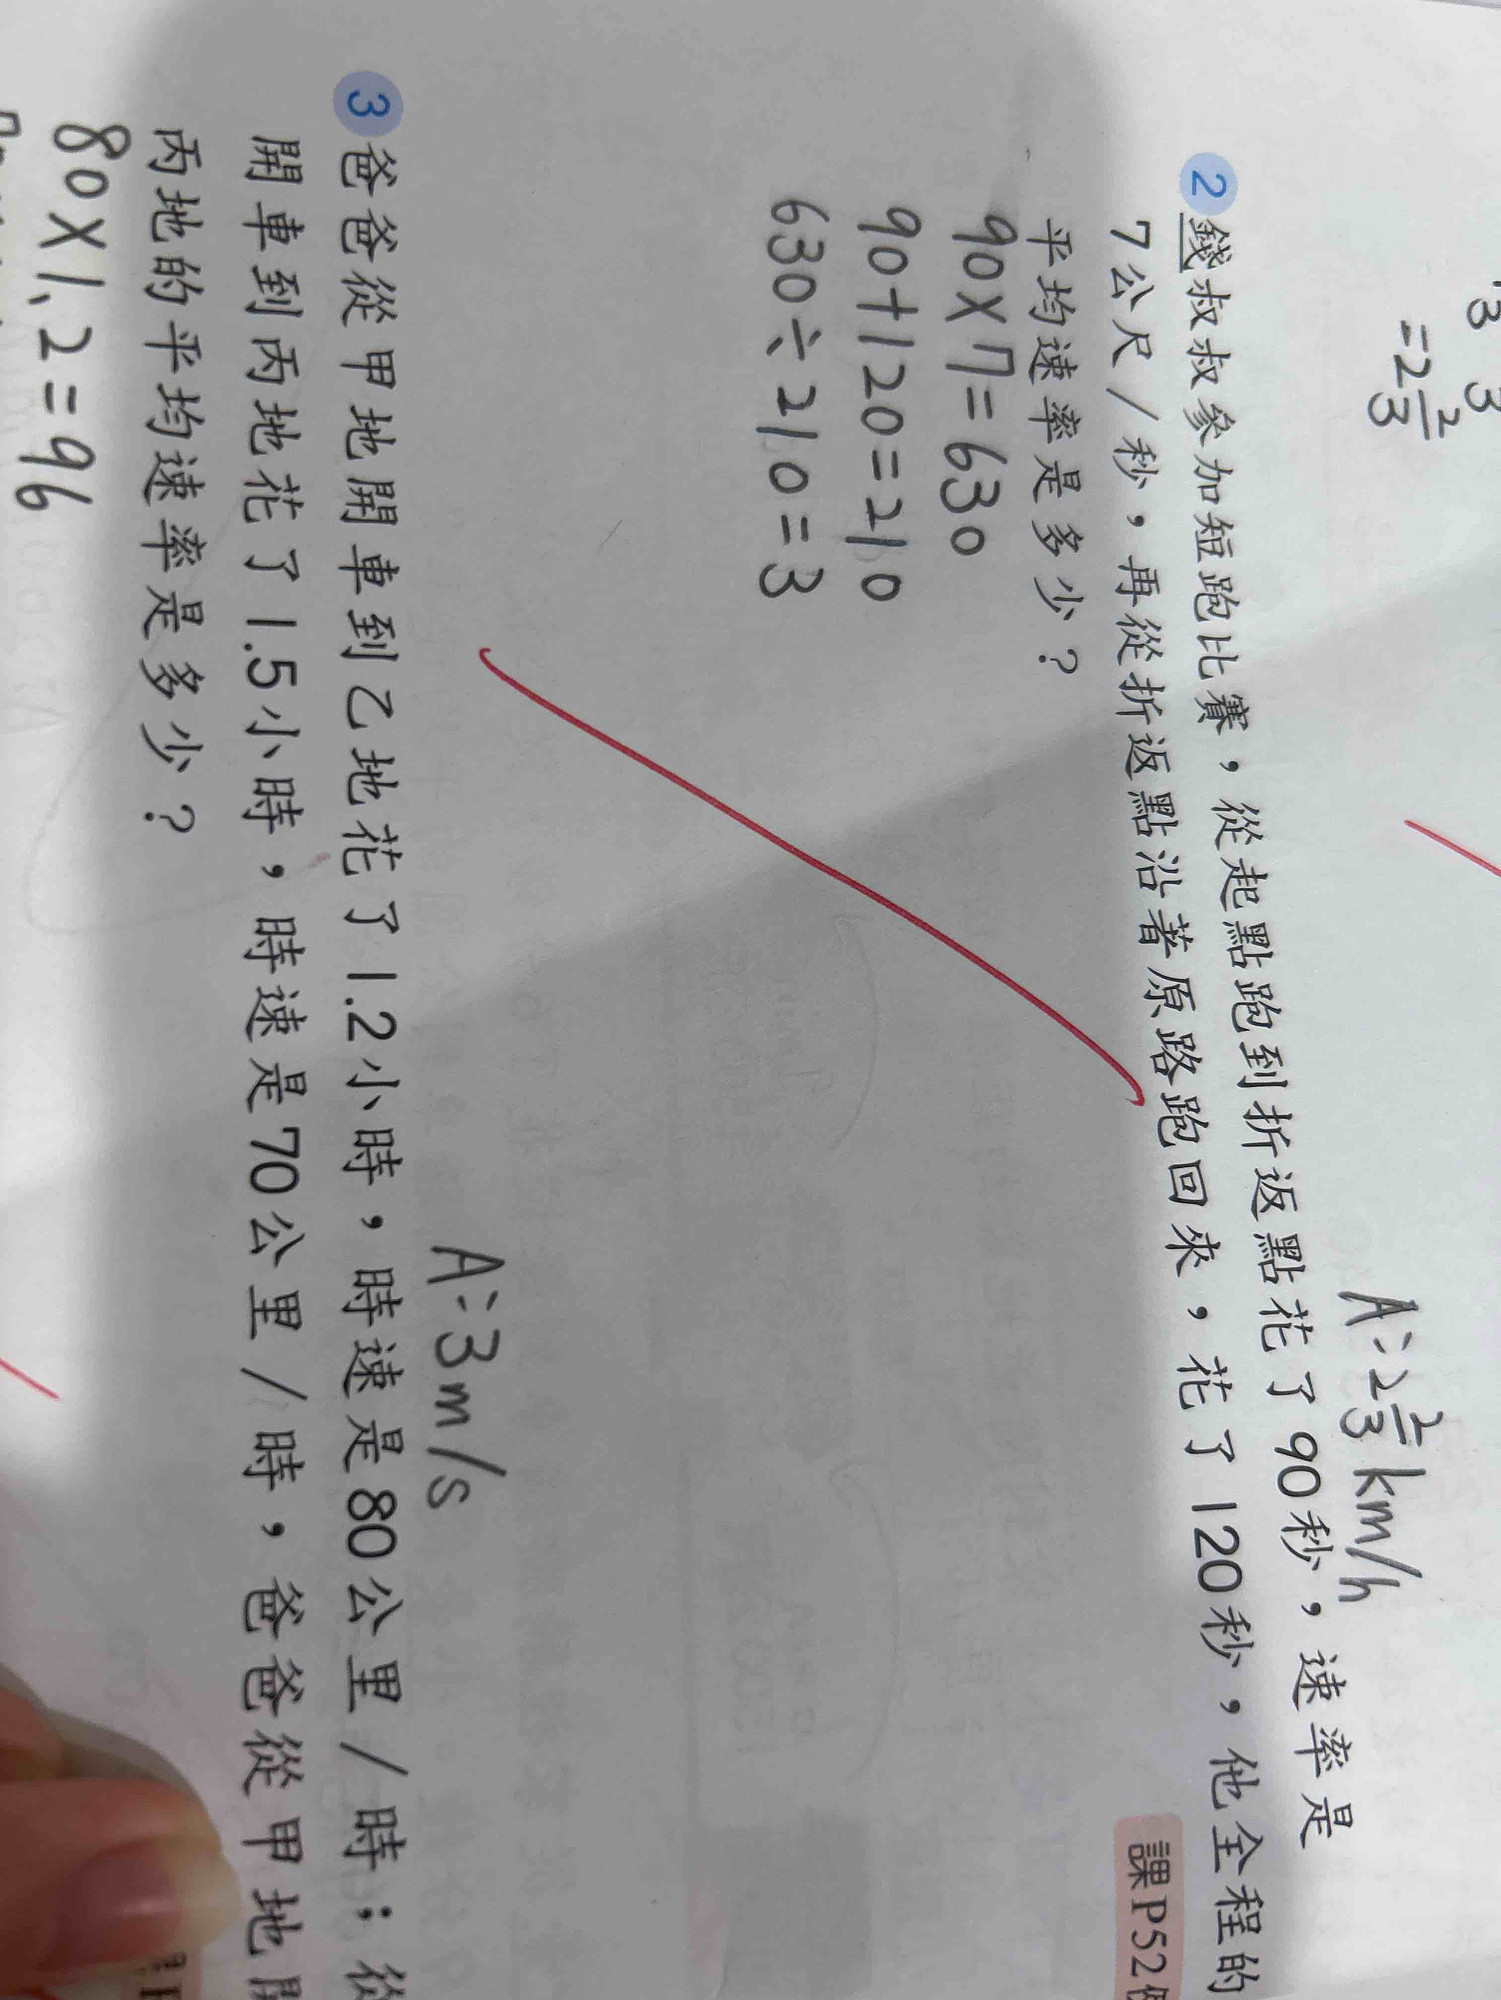 3 3
=2 2/3
A:2 2/3 km/h
2 錢叔叔參加短跑比賽，從起點跑到折返點花了90秒，速率是
7公尺/秒，再從折返點沿著原路跑回來，花了120秒，他全程的
平均速率是多少？
課P52
90×7=630
90+120=210
630÷210=3
A:3m/s
3 爸爸從甲地開車到乙地花了1.2小時，時速是80公里/時；從
開車到丙地花了1.5小時，時速是70公里/時，爸爸從甲地開
丙地的平均速率是多少？
80×1.2=96